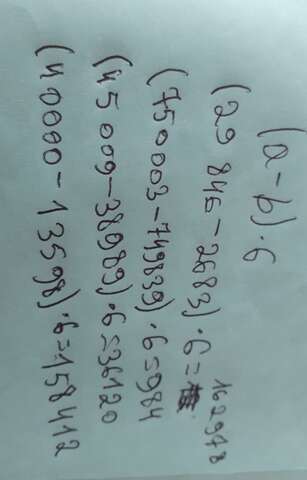 (a-b)·6
(29 846-2683)·6=162978
(750003-749839)·6=984
(45 009-38989)·6=36120
(40000-13598)·6=158412